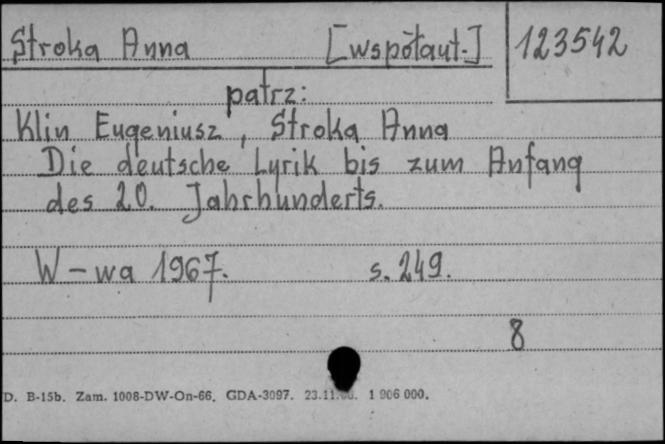 Stroka Anna [współaut.] 123542
patrz:
Klin Eugeniusz, Stroka Anna
Die deutsche Lyrik bis zum Anfang
des 20. Jahrhunderts.
W-wa 1967. s. 249.
8
D. B-15b. Zam. 1008-DW-On-66. GDA-3097. 23.11. 1 906 000.